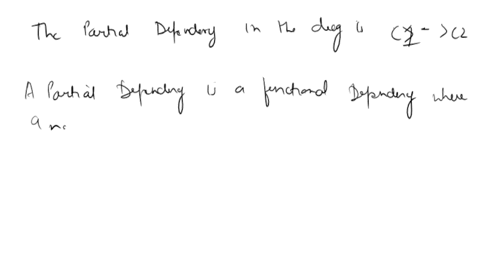 The Partial Dependency in the diag is C1 -> C2
A Partial Dependency is a functional Dependency where
a no